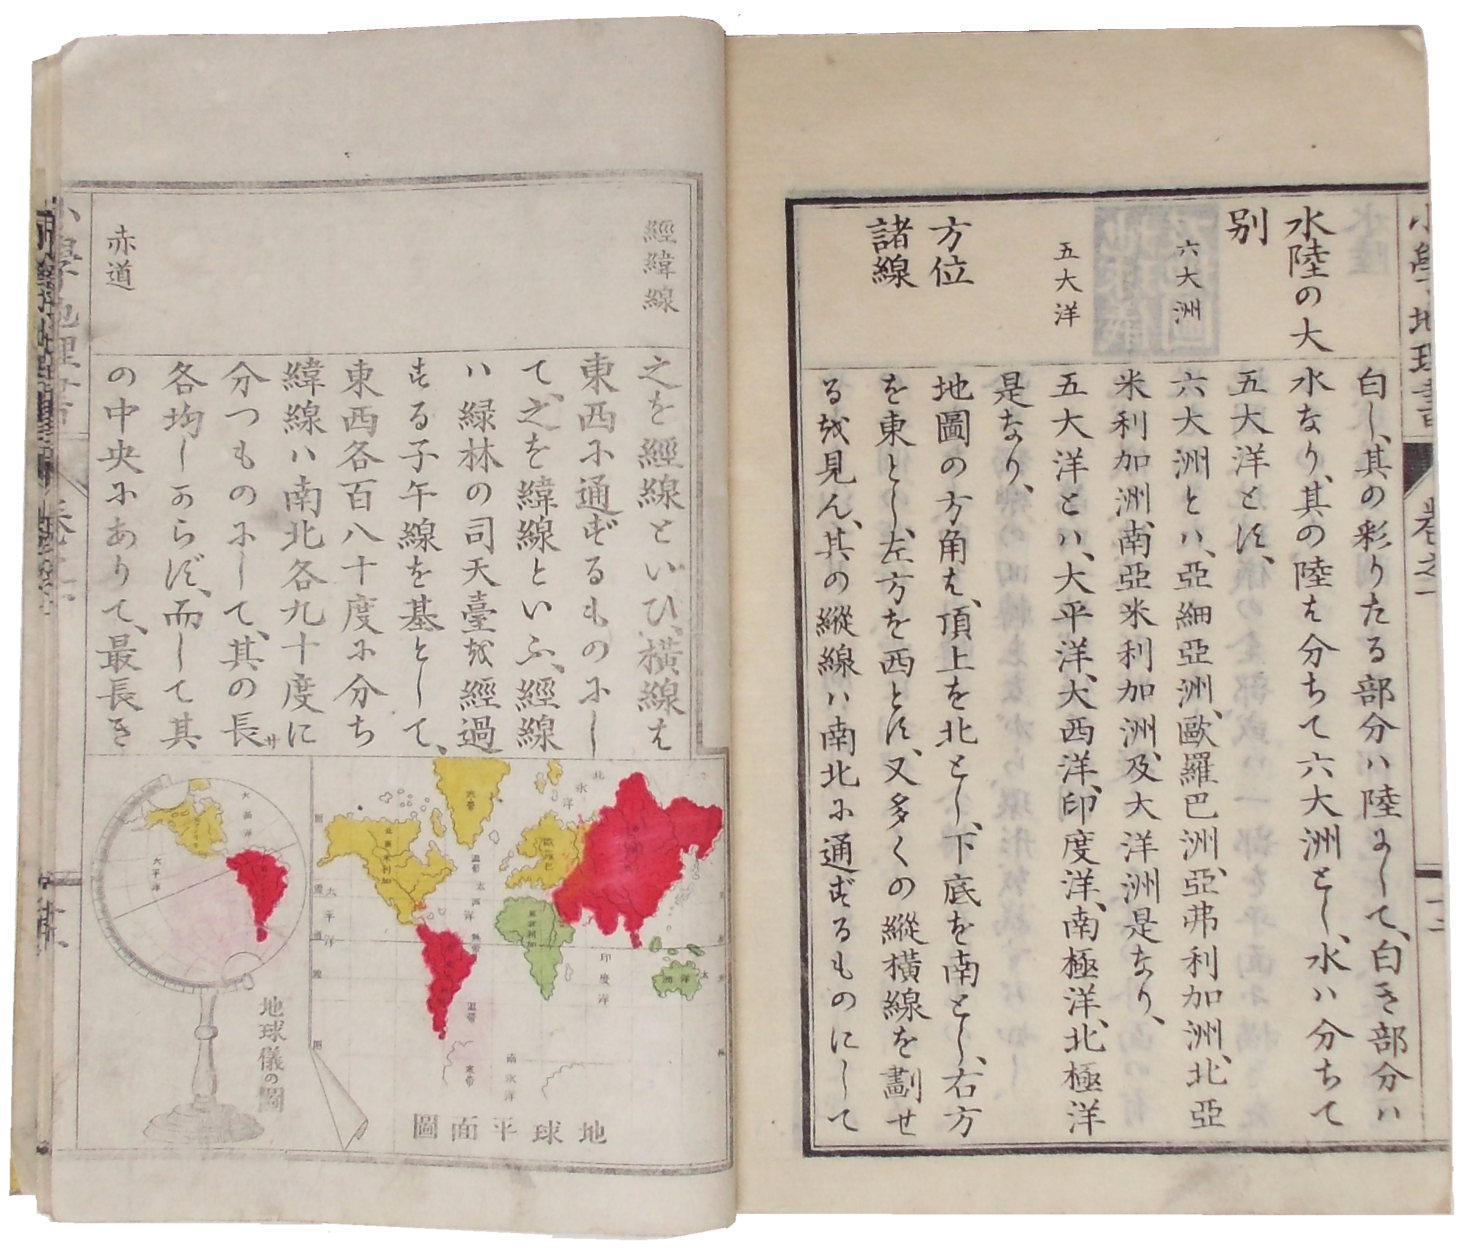 小學地理書
卷之一
水陸の大
別
六大洲
五大洋
方位
諸線
白し、其の彩りたる部分ハ陸にして、白き部分ハ
水なり、其の陸を分ちて六大洲とし、水ハ分ちて
五大洋とす、
六大洲とハ、亞細亞洲、歐羅巴洲、亞弗利加洲、北亞
米利加洲、南亞米利加洲、及大洋洲是なり、
五大洋とハ、大平洋、大西洋、印度洋、南極洋、北極洋
是なり、
地圖の方角を、頂上を北とし、下底を南とし、右方
を東とし、左方を西とす、又多くの縱橫線を劃せ
る越見ん、其の縱線ハ南北に通ずるものにして
經緯線
赤道
之を經線といひ、橫線を
東西に通ずるものにし
て、之を緯線といふ、經線
ハ緑林の司天臺越經過
する子午線を基として、
東西各百八十度に分ち
緯線ハ南北各九十度に
分つものにして、其の長サ
各均しからず、而して其
の中央にありて、最長き
地球儀の圖
大平洋
地球平面圖
北氷洋
寒帶
温帶
大西洋
熱帶
温帶
寒帶
印度洋
南氷洋
大平洋